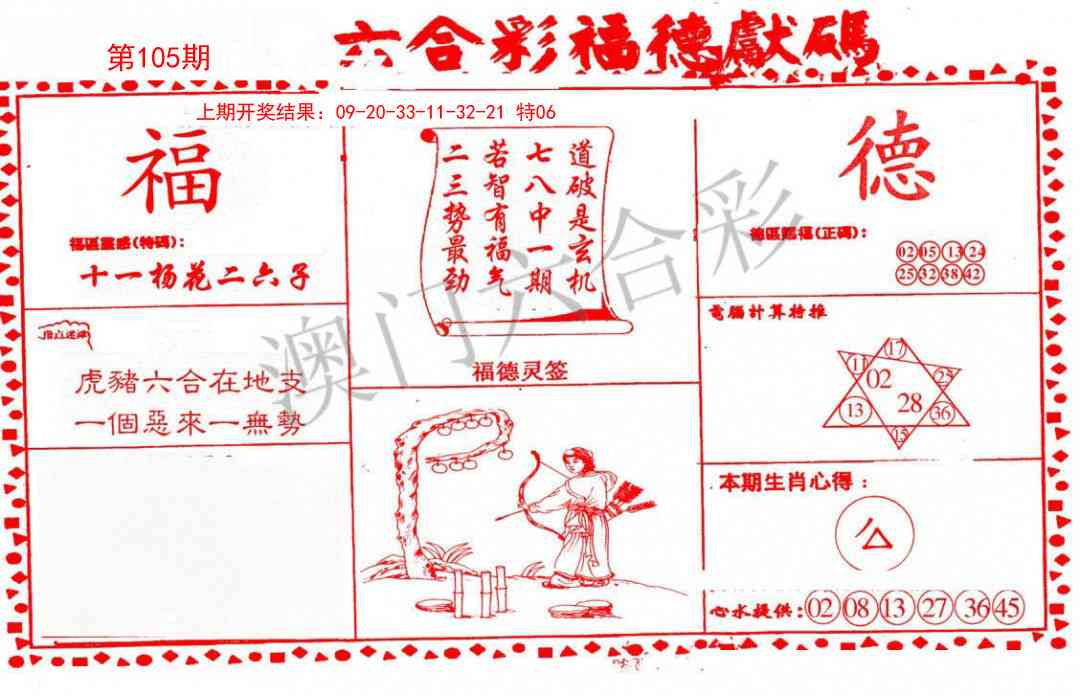 六合彩福德獻碼
第105期
上期开奖结果：09-20-33-11-32-21 特06
福
福區靈感(特碼)：
十一杨花二六子
指点迷津
虎豬六合在地支
一個惡來一無勢
道破是玄机
七八中一期
若智有福气
二三势最劲
福德灵签
德
德區賜福(正碼)：
02 05 13 24
25 32 38 42
電腦計算特推
17
11 02 25
13 28 36
15
本期生肖心得：
心水提供：02 08 13 27 36 45
澳门六合彩